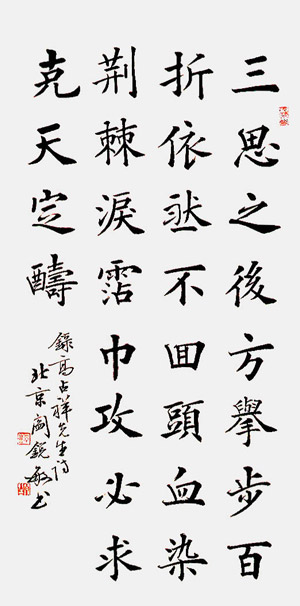 三思之後方舉步百
折依然不囬頭血染
荆棘淚霑巾攻必求
克天定醻
錄高占祥先生詩
北京閻銳敏書